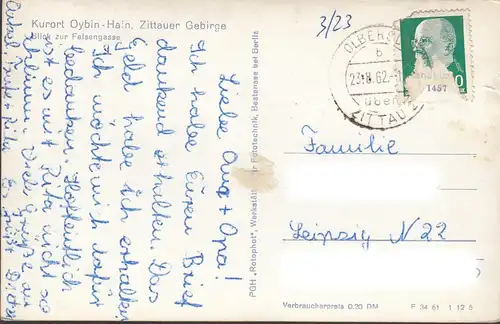 Kurort Oybin-Hain, Zittauer Gebirge
Blick zur Felsengasse
3/23
OLBERS
b
23.8.62
über
ZITTAU
1457
Liebe Oma + Opa!
Ich habe Euren Brief
dankend erhalten. Das
Geld habe ich erhalten
Ich möchte mich dafür
bedanken. Hoffentlich
ist es mit Rita nicht so
schlimm. Viele Grüße an
Onkel
Es grüßt
Dieter
PGH „Rotophot", Werkstätten für Fototechnik, Bestensee bei Berlin
Familie
Leipzig N 22
Verbraucherpreis 0.20 DM
F 34 61 1 12 6